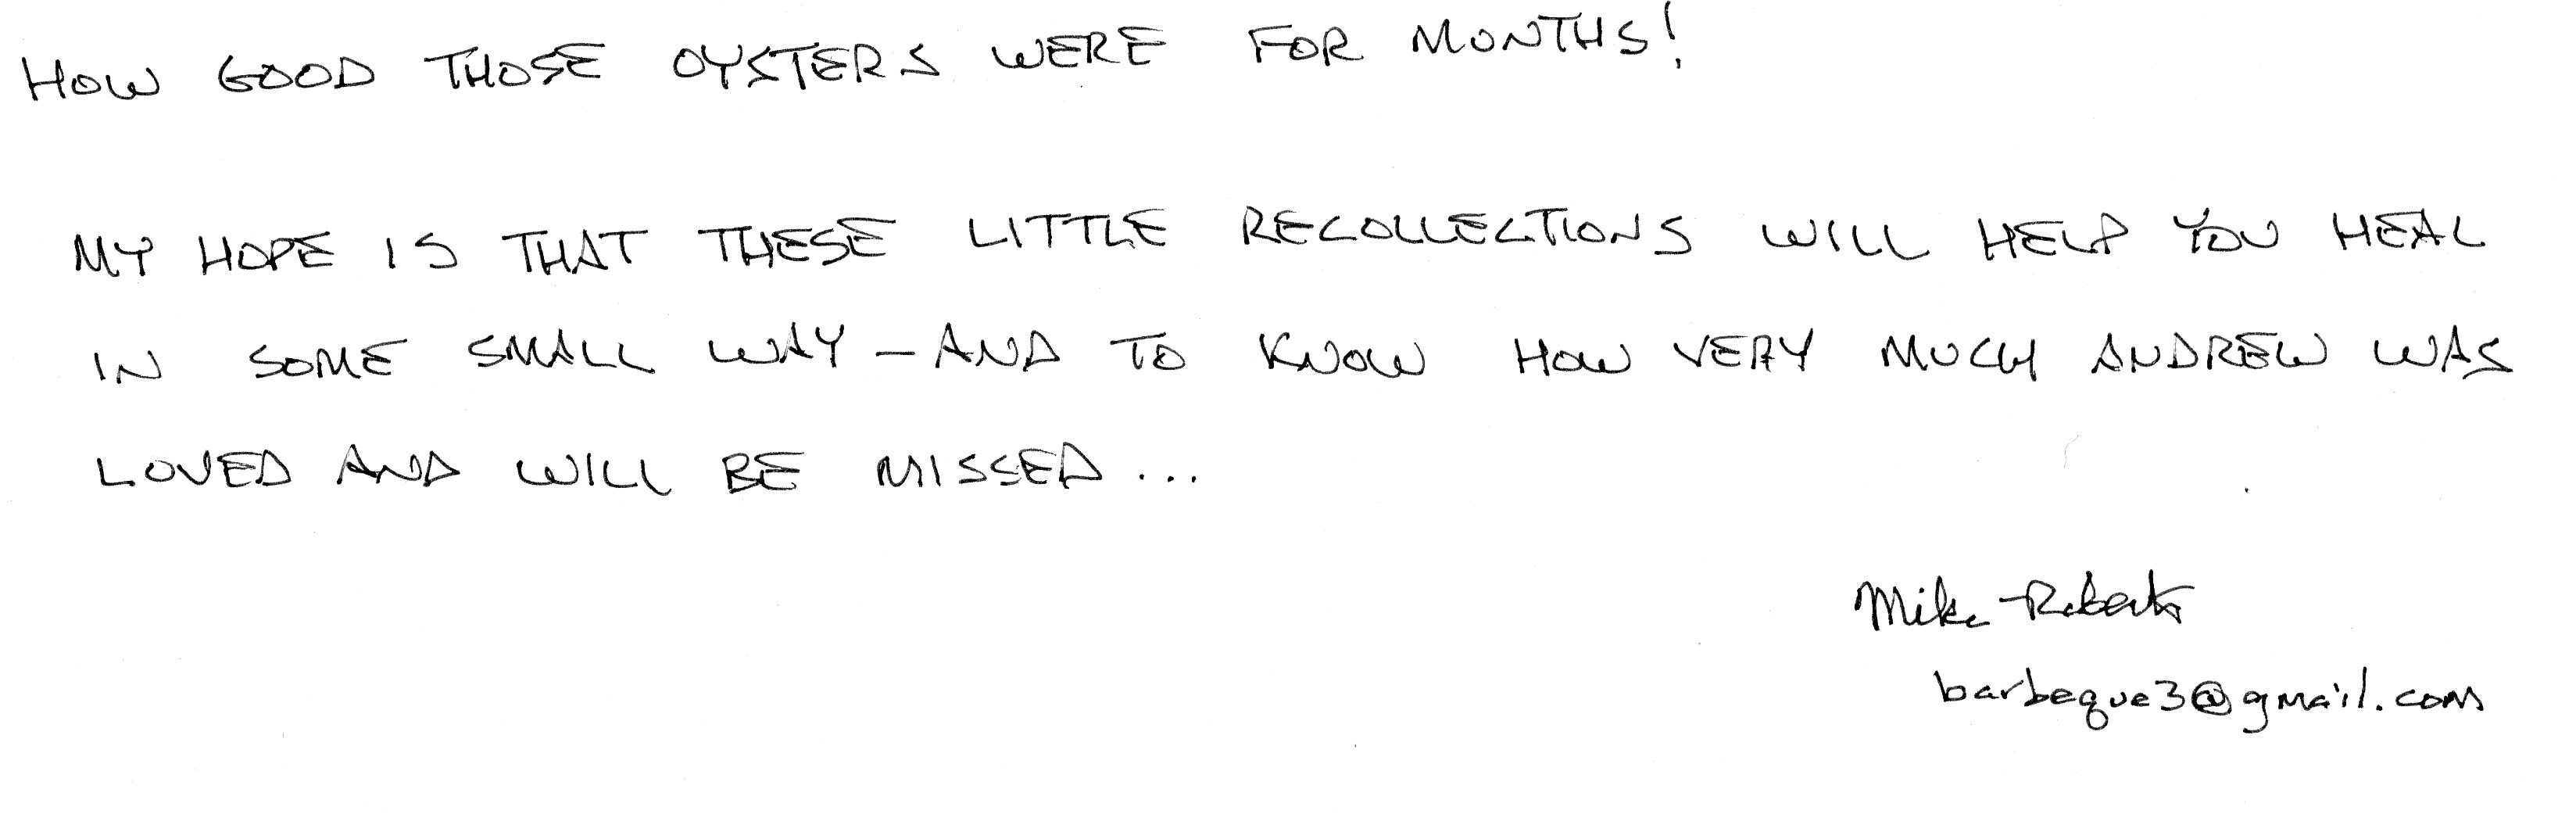 HOW GOOD THOSE OYSTERS WERE FOR MONTHS!
MY HOPE IS THAT THESE LITTLE RECOLLECTIONS WILL HELP YOU HEAL
IN SOME SMALL WAY – AND TO KNOW HOW VERY MUCH ANDREW WAS
LOVED AND WILL BE MISSED...
Mike Roberts
barbeque3@gmail.com